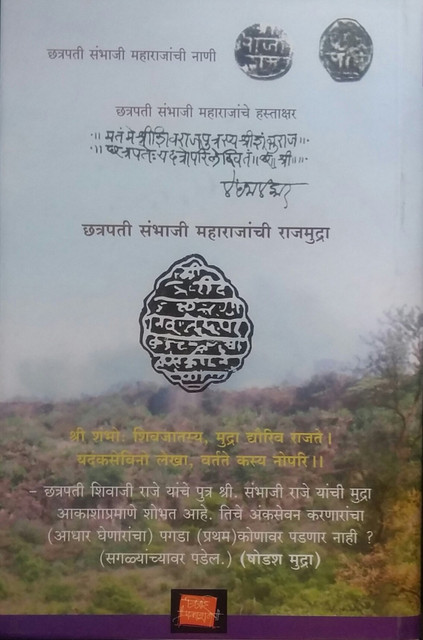 छत्रपती संभाजी महाराजांची नाणी
छत्रपती संभाजी महाराजांचे हस्ताक्षर
॥ मतं मे श्रीशिवराजपुत्रस्य श्रीशंभुराज
छत्रपतेः यदत्रोपरिलेखितं॥ छ॥ श्री॥
छत्रपती संभाजी महाराजांची राजमुद्रा
श्री
श्री शभोः शिवजातस्य, मुद्रा द्योरिव राजते।
यदकसेविनो लेखा, वर्तते कस्य नोपरि।।
- छत्रपती शिवाजी राजे यांचे पुत्र श्री. संभाजी राजे यांची मुद्रा
आकाशाप्रमाणे शोभत आहे. तिचे अंकसेवन करणारांचा
(आधार घेणारांचा) पगडा (प्रथम)कोणावर पडणार नाही ?
(सगळ्यांच्यावर पडेल.) (षोडश मुद्रा)